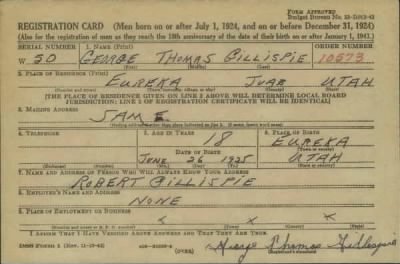 FORM APPROVED
REGISTRATION CARD (Men born on or after July 1, 1924, and on or before December 31, 1924)
(Also for the registration of men as they reach the 18th anniversary of the date of their birth on or after January 1, 1943.)
SERIAL NUMBER 1. NAME (Print) ORDER NUMBER
W 50 GEORGE THOMAS GILLISPIE 10573
(First) (Middle) (Last)
2. PLACE OF RESIDENCE (Print)
EUREKA JUAB UTAH
[THE PLACE OF RESIDENCE GIVEN ON LINE 2 ABOVE WILL DETERMINE LOCAL BOARD
JURISDICTION: LINE 2 OF REGISTRATION CERTIFICATE WILL BE IDENTICAL]
3. MAILING ADDRESS
SAME
4. TELEPHONE 5. AGE IN YEARS 6. PLACE OF BIRTH
18 EUREKA
DATE OF BIRTH
JUNE 26 1925 UTAH
(Exchange) (Number) (Mo.) (Day) (Yr.)
7. NAME AND ADDRESS OF PERSON WHO WILL ALWAYS KNOW YOUR ADDRESS
ROBERT GILLISPIE
8. EMPLOYER'S NAME AND ADDRESS
NONE
9. PLACE OF EMPLOYMENT OR BUSINESS
x x x
I AFFIRM THAT I HAVE VERIFIED ABOVE ANSWERS AND THAT THEY ARE TRUE.
(OVER) George Thomas Gillespie
(Registrant's signature)